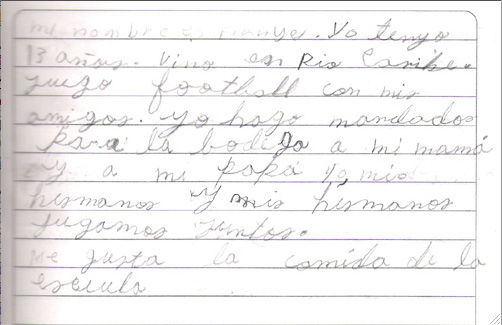 mi nombre es . Yo tengo
13 años. Vivo en Rio Caribe.
juego football con mis
amigos. yo hago mandados
para la bodega a mi mamá
y a mi papá yo, mis
hermanos y mis hermanos
jugamos juntos.
me justa la comida de la
escuela